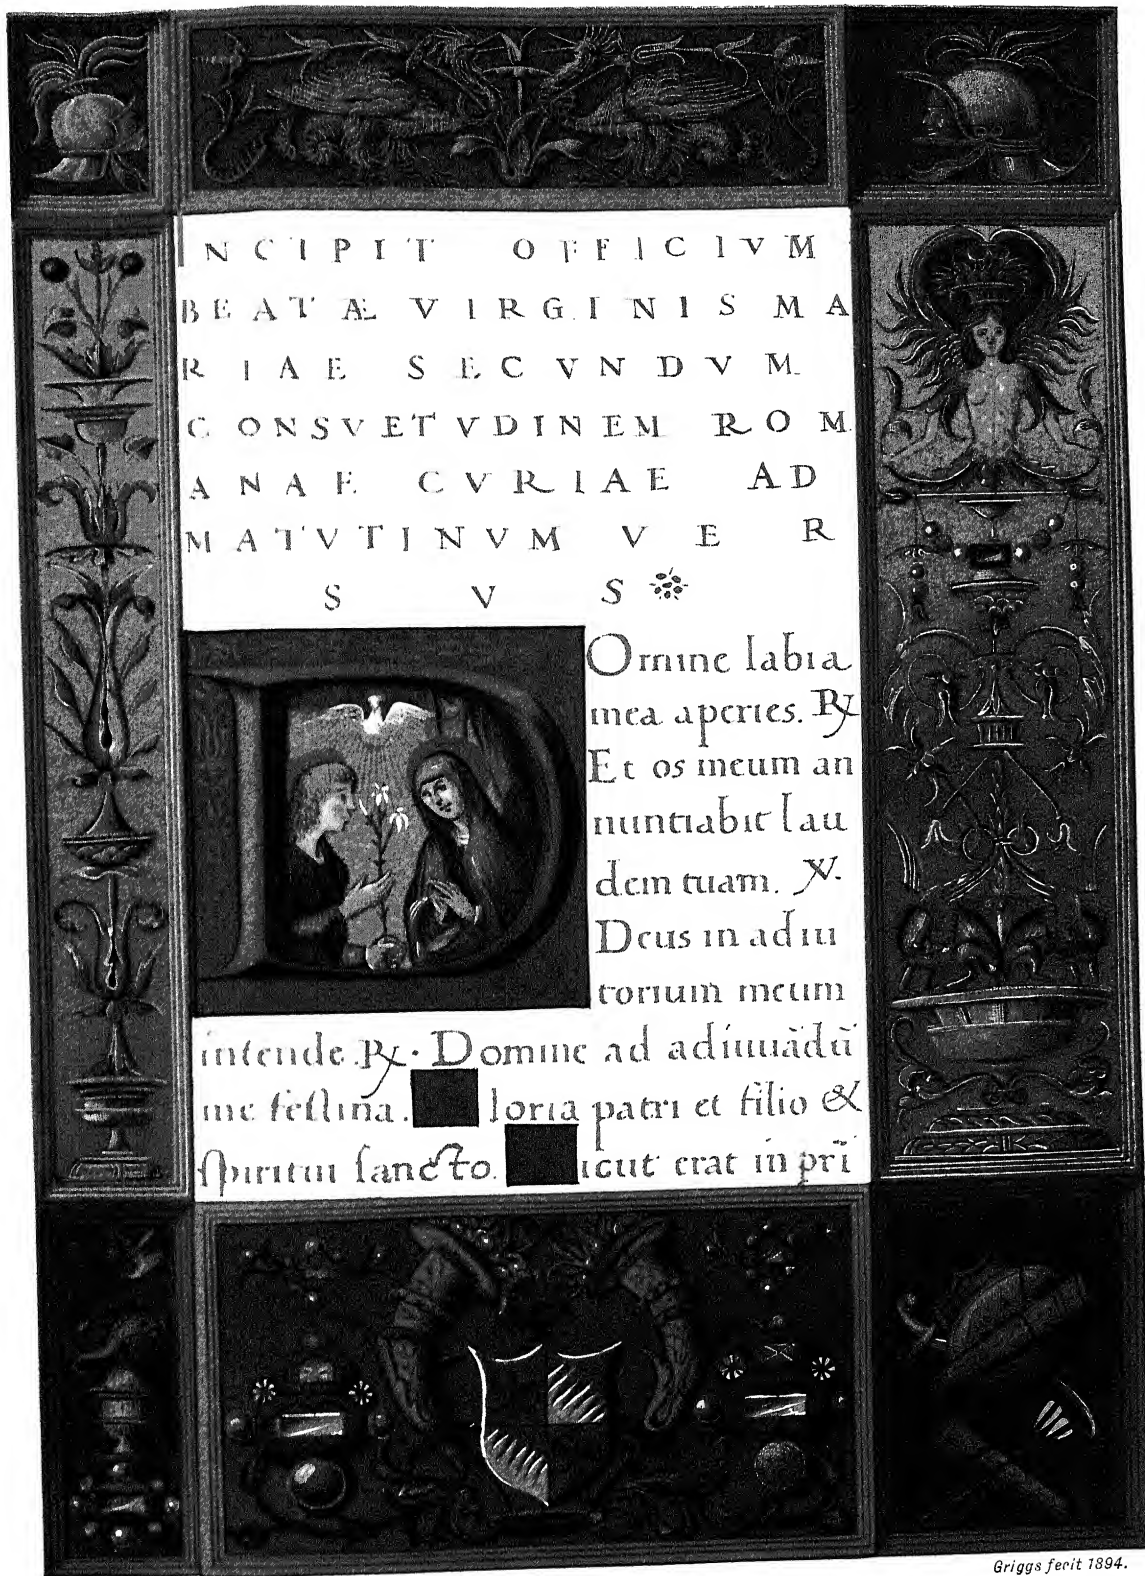 INCIPIT OFFICIVM
BEATÆ VIRGINIS MA
RIAE SECVNDVM
CONSVETVDINEM ROM
ANAE CVRIAE AD
MATVTINVM VER
SVS
DOmine labia
mea aperies. ℟
Et os meum an
nuntiabit lau
dem tuam. ℣.
Deus in adiu
torium meum
intende. ℟. Domine ad adiuuādū
me feſtina. loria patri et filio &
ſpiritui ſancto. icut erat in pri̅
Griggs fecit 1894.